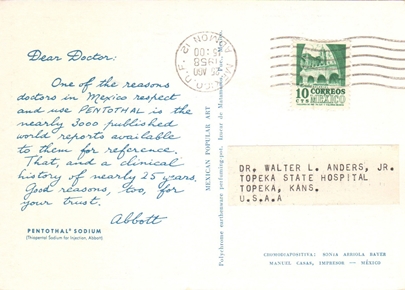 Dear Doctor:
One of the reasons
doctors in Mexico respect
and use PENTOTHAL is the
nearly 3000 published
world reports available
to them for reference.
That, and a clinical
history of nearly 25 years.
Good reasons, too, for
your trust.
Abbott
PENTOTHAL® SODIUM
(Thiopental Sodium for Injection, Abbott)
MEXICAN POPULAR ART
Polychrome earthenware perfuming-pot. Izucar de Matamoros,
MEXICO, D.F.
25 AGO
1958
13:00
ADMON 12
10 CORREOS
CTS MEXICO
DR. WALTER L. ANDERS, JR.
TOPEKA STATE HOSPITAL
TOPEKA, KANS.
U.S.A.A
CROMODIAPOSITIVA: SONIA ARRIOLA BAYES
MANUEL CASAS, IMPRESOR — MÉXICO